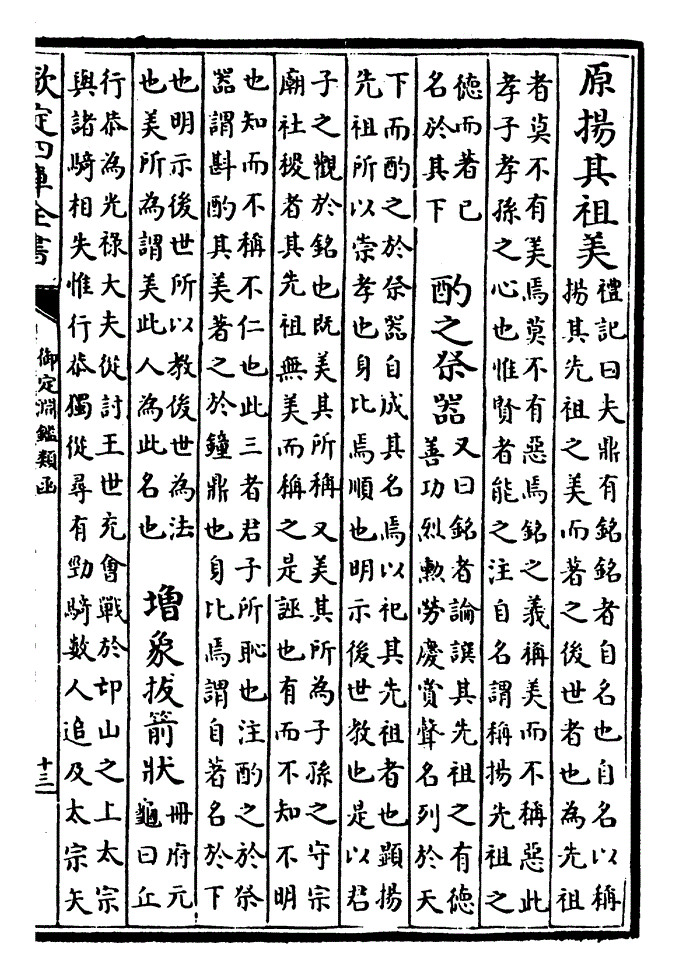 原揚其祖美 禮記曰夫鼎有銘銘者自名也自名以稱
揚其先祖之美而著之後世者也為先祖
者莫不有美焉莫不有惡焉銘之義稱美而不稱惡此
孝子孝孫之心也惟賢者能之注自名謂稱揚先祖之
德而著已
名於其下
酌之祭器 又曰銘者論譔其先祖之有德
善功烈勲勞慶賞聲名列於天
下而酌之於祭器自成其名焉以祀其先祖者也顯揚
先祖所以崇孝也身比焉順也明示後世教也是以君
子之觀於銘也既美其所稱又美其所為子孫之守宗
廟社稷者其先祖無美而稱之是誣也有而不知不明
也知而不稱不仁也此三者君子所恥也注酌之於祭
器謂斟酌其美著之於鐘鼎也身比焉謂自著名於下
也明示後世所以教後世為法
也美所為謂美此人為此名也
增象拔箭狀 冊府元
龜曰丘
行恭為光祿大夫從討王世充會戰於邙山之上太宗
與諸騎相失惟行恭獨從尋有勁騎數人追及太宗矢
欽定四庫全書
御定淵鑑類函
十三